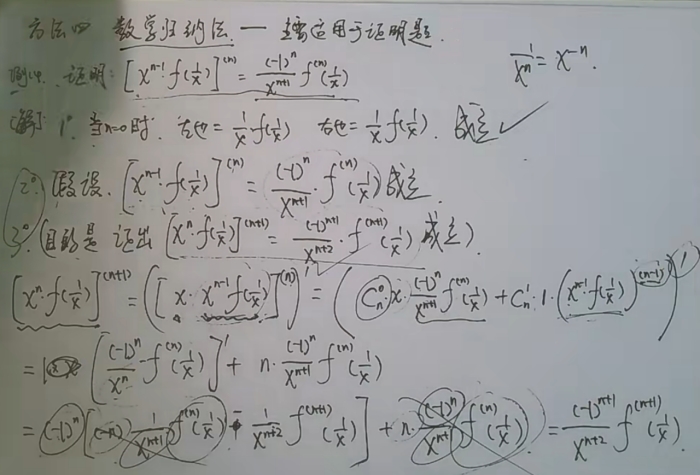 方法四 数学归纳法 — 主要适用于证明题.
例4. 证明: [x^{n-1} f(1/x)]^{(n)} = (-1)^n/x^{n+1} f^{(n)}(1/x)
1/x^n = x^{-n}.
[解] 1° 当n=0时. 左边 = 1/x f(1/x) 右边 = 1/x f(1/x). 成立 ✓
2° 假设. [x^{n-1}·f(1/x)]^{(n)} = (-1)^n/x^{n+1}·f^{(n)}(1/x) 成立.
3° (目的是 证出 [x^n·f(1/x)]^{(n+1)} = (-1)^{n+1}/x^{n+2}·f^{(n+1)}(1/x) 成立)
[x^n·f(1/x)]^{(n+1)} = ([x·x^{n-1}f(1/x)]^{(n)})' = (C_n^0·x·(-1)^n/x^{n+1} f^{(n)}(1/x) + C_n^1·1·(x^{n-1}·f(1/x))^{(n-1)})'
= [(-1)^n/x^n·f^{(n)}(1/x)]' + n·(-1)^n/x^{n+1} f^{(n)}(1/x)
= (-1)^n [(-n) 1/x^{n+1} f^{(n)}(1/x) - 1/x^{n+2} f^{(n+1)}(1/x)] + n·(-1)^n/x^{n+1} f^{(n)}(1/x) = (-1)^{n+1}/x^{n+2} f^{(n+1)}(1/x).